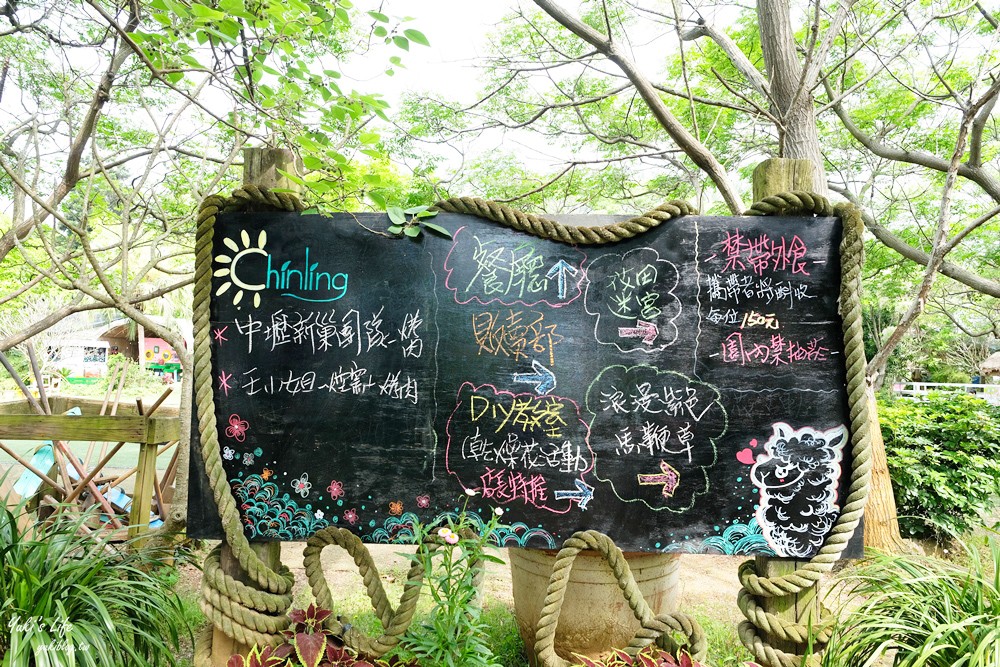 Chinling
*中壢新巢國孩~烤肉
*王小姐~控窯+烤肉
餐廳↑
販賣部
→
DIY教室
(乾燥花活動
店長特推
花田
迷宮
→
浪漫紫色
馬鞭草
→
禁帶外食
攜帶者將酌收
每位150元
園內禁抽菸
Yuki's Life
yukiblog.tw